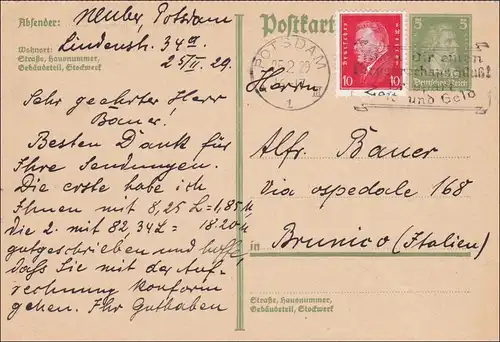 Absender: Neuber, Potsdam
Wohnort: Lindenstr. 34a
Straße, Hausnummer,
Gebäudeteil, Stockwerk
25/II. 29
Sehr geehrter Herr
Bauer!
Besten Dank für
Ihre Sendungen.
Die erste habe ich
Ihnen mit 8,25 L = 1,85 M
die 2. mit 82,34 L = 18.20 M
gutgeschrieben und hoffe,
dass Sie mit der Auf-
rechnung konform
gehen. Ihr Guthaben
Postkarte
POTSDAM
25.2.29
1
Deutsches Reich
10 10
5 5
Deutsches Reich
Dir einen
und Geld
Herrn
Alfr. Bauer
Via ospedale 168
in Brunico (Italien)
Straße, Hausnummer,
Gebäudeteil, Stockwerk